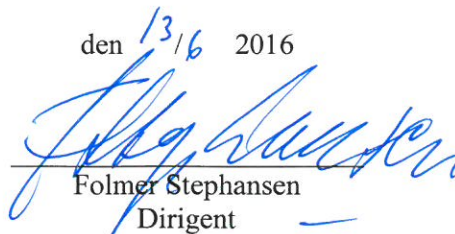 den 13/6 2016
Folmer Stephansen
Dirigent